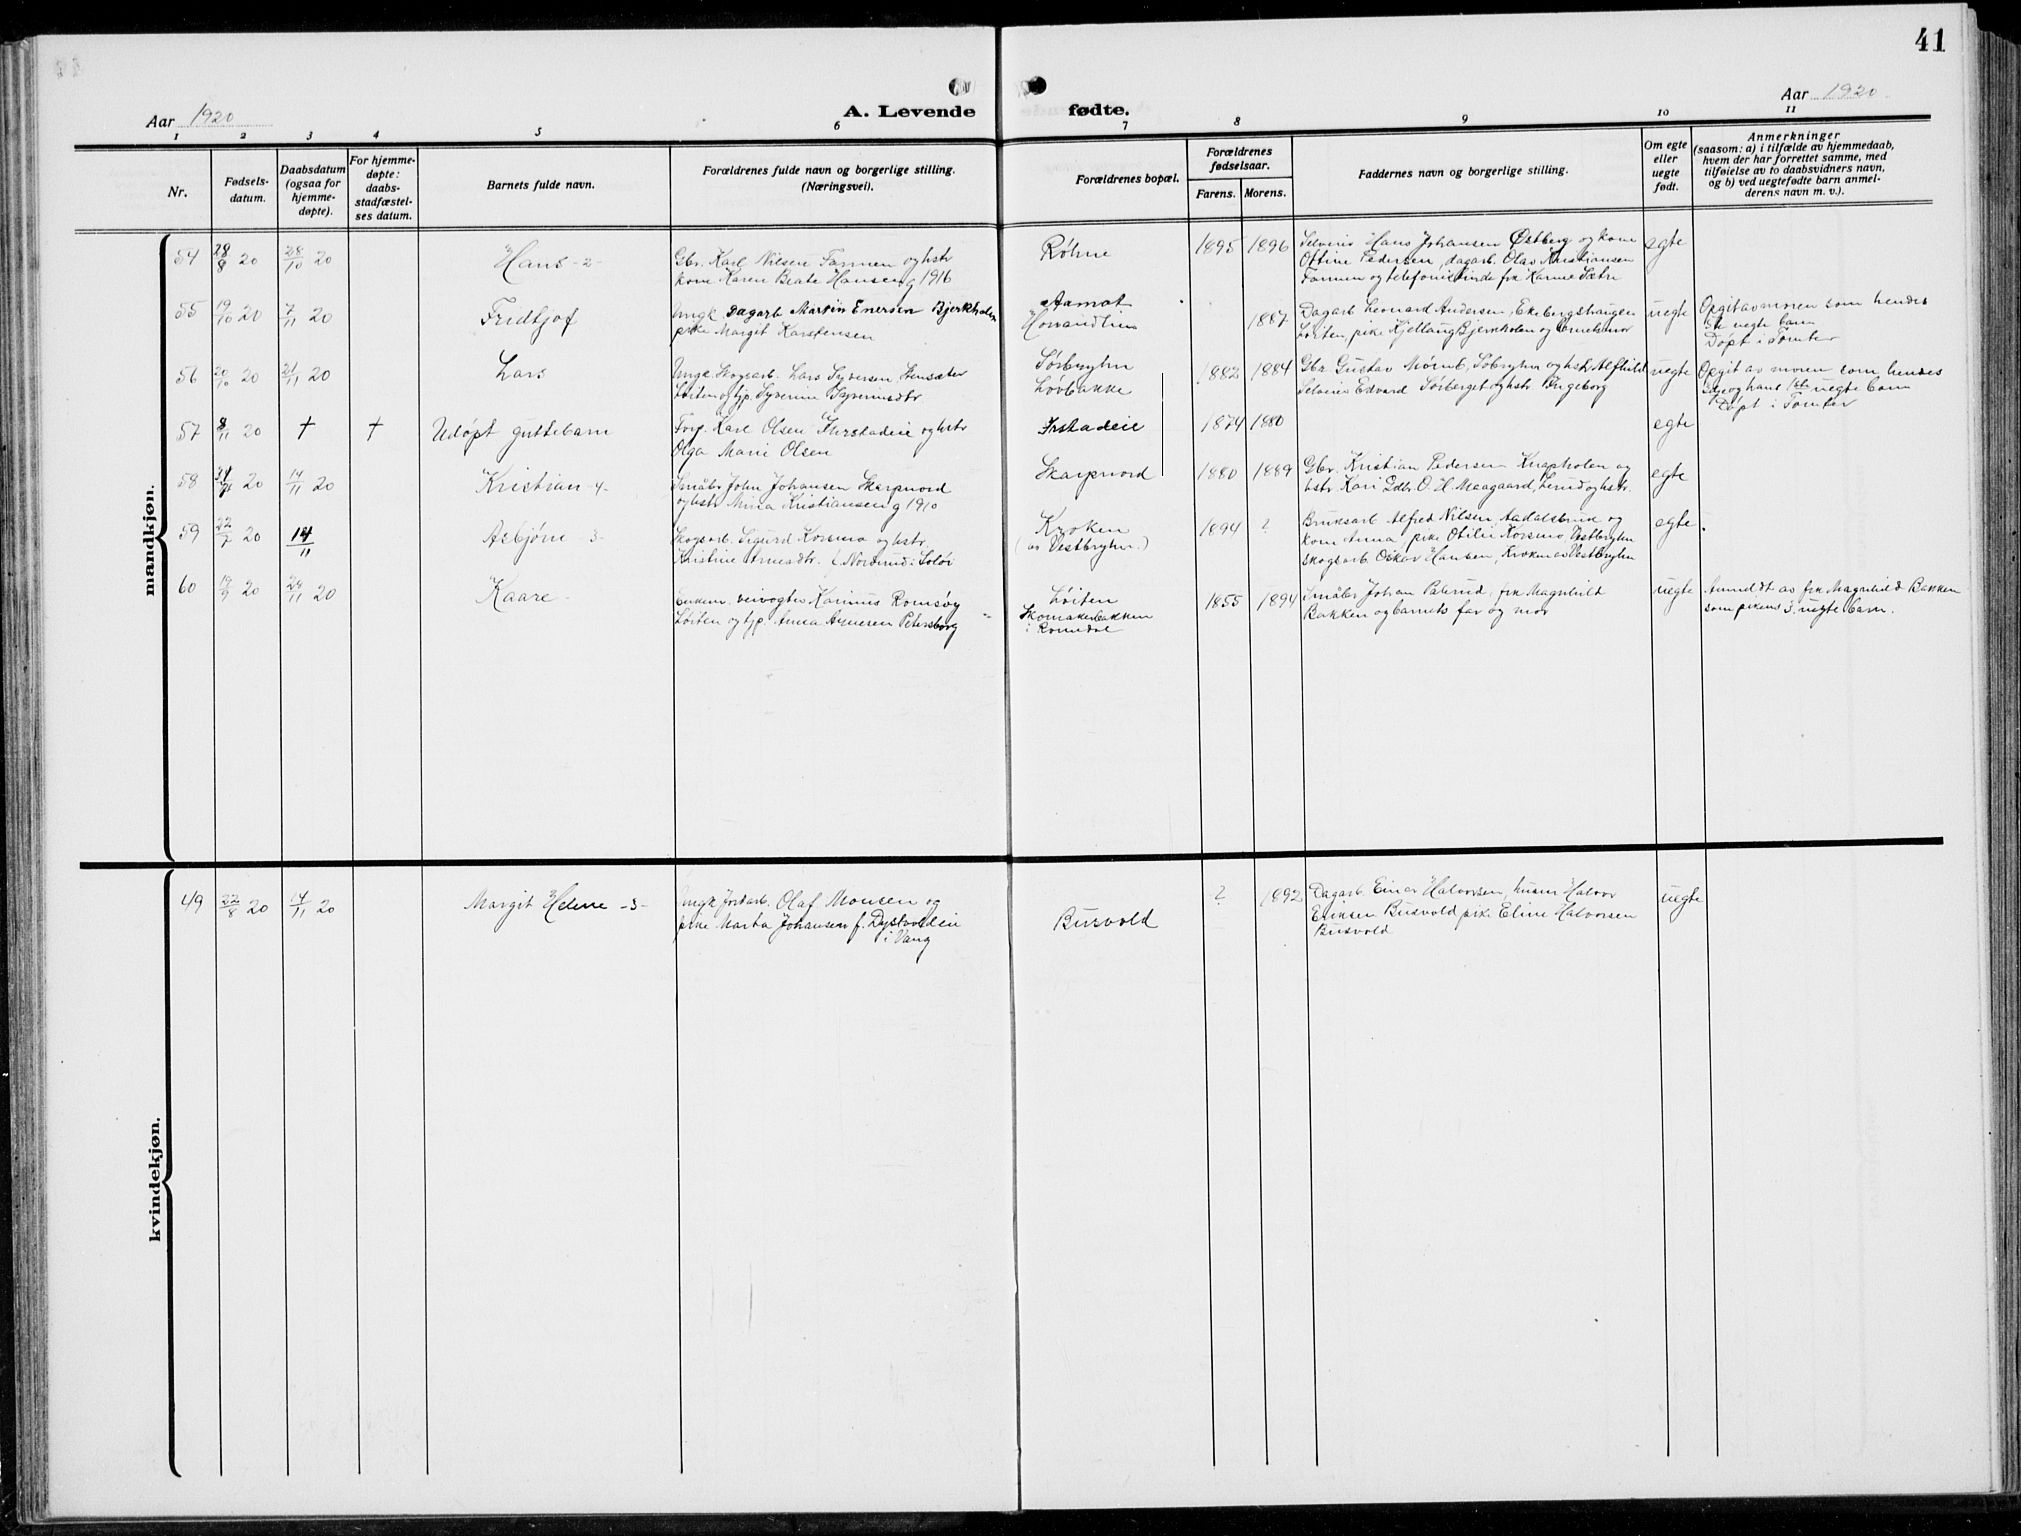 41
Aar 1920
A. Levende fødte.
Aar 1920
1 2 3 4 5 6 7 8 9 10 11
Nr.
Fødsels-
datum.
Daabsdatum
(ogsaa for
hjemme-
døpte).
For hjemme-
døpte:
daabs-
stadfæstel-
ses datum.
Barnets fulde navn.
Forældrenes fulde navn og borgerlige stilling.
(Næringsvei).
Forældrenes bopæl.
Forældrenes
fødselsaar.
Farens. Morens.
Faddernes navn og borgerlige stilling.
Om egte
eller
uegte
født.
Anmerkninger
(saasom: a) i tilfælde av hjemmedaab,
hvem der har forrettet samme, med
tilføielse av to daabsvidners navn,
og b) ved uegtefødte barn anmel-
derens navn m. v.).
mandkjøn.
54 28/8 20 28/10 20 Hans -2-
Gbr. Karl Nilsen Farmen og hstr
kone Karen Beate Hansen g 1916
Røhne
1895 1896
Selveier Hans Johansen Østberg og kone
Oftine Pedersen, dagarb. Olav Kristiansen
Farmen og telefonistinde frk Karme Sætre
egte
55 19/10 20 7/11 20 Fridtjof
Ungk Dagarb Martin Enersen Bjerkholen
pike Margit Karstensen
Aamot
1887
Dagarb Leonard Andersen, Ekebergstrangen
Løiten, pike Kjellaug Bjernholen og barnets mor
uegte
Opgit av moren som hendes
1ste uegte barn
Døpt i Tomter
56 20/10 20 21/11 20 Lars
Ungk. Skogsarb. Lars Syversen Stensæter
Løiten og tjp. Syverine Syversdtr.
Sørbryhn
Løvbakke
1882 1884
Gbr. Gustav Mørub, Søbryhn og hstr Alfhild
Selveier Edvard Sørberget og hstr Ingeborg
uegte
Opgit av moren som hendes
3dje og hans 1ste uegte barn
Døpt i Tomter
57 8/11 20 † † Udøpt guttebarn
Forp. Karl Olsen Ihrstadeie og hstr
Olga Marie Olsen
Irstadeie
1874 1880
egte
58 20 14/11 20 Kristian -4-
Småbr John Johansen Skarpnord
og hstr Mina Kristiansen g 1910
Skarpnord
1880 1889
Gbr. Kristian Pedersen Knapholen og
hstr. Kari Gdbr. O. H. Maagaard, Lerud og hstr.
egte
59 22/7 20 14/11 Asbjørn -3-
Skogsarb. Sigurd Korsmo og hstr.
Kristine Arnesdtr. f. Nordrud i Solør
Kroken
(av Vestbryhn.)
1894 ?
Bruksarb Alfred Nilsen, Aadalsbruk og
kone Anna pike Otilie Korsmo, Vestbryhn
skogsarb Oskar Hansen, Kroken av Vestbryhn
egte
60 19/9 20 20 Kaare -
Enkem. veivogter Karinus Romsøy
Løiten og tjp. Anna Arnesen Petersborg
Løiten
Skomakerbakken
i Romedal
1855 1894
Småbr Johan Palerud, frk Magnhild
Bakken og barnets far og mor
uegte
Anmeldt av frk Magnhild Bakken
som pikens 3. uegte barn.
kvindekjøn.
49 22/8 20 14/11 20 Margit Helene -3-
Ungk Jordarb. Olaf Monsen og
pike Marta Johansen f. Dystvoldeie
i Vang
Busvold
? 1892
Dagarb Einar Halvorsen, husm Halvor
Eriksen Busvold pike Eline Halvorsen
Busvold
uegte